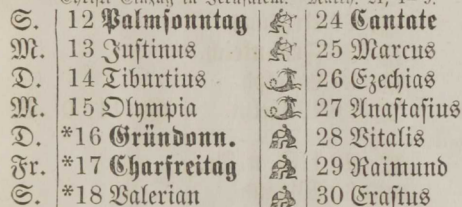 S. 12 Palmsonntag 24 Cantate
M. 13 Justinus 25 Marcus
D. 14 Tiburtius 26 Ezechias
M. 15 Olympia 27 Anastasius
D. *16 Gründonn. 28 Vitalis
Fr. *17 Charfreitag 29 Raimund
S. *18 Valerian 30 Erastus